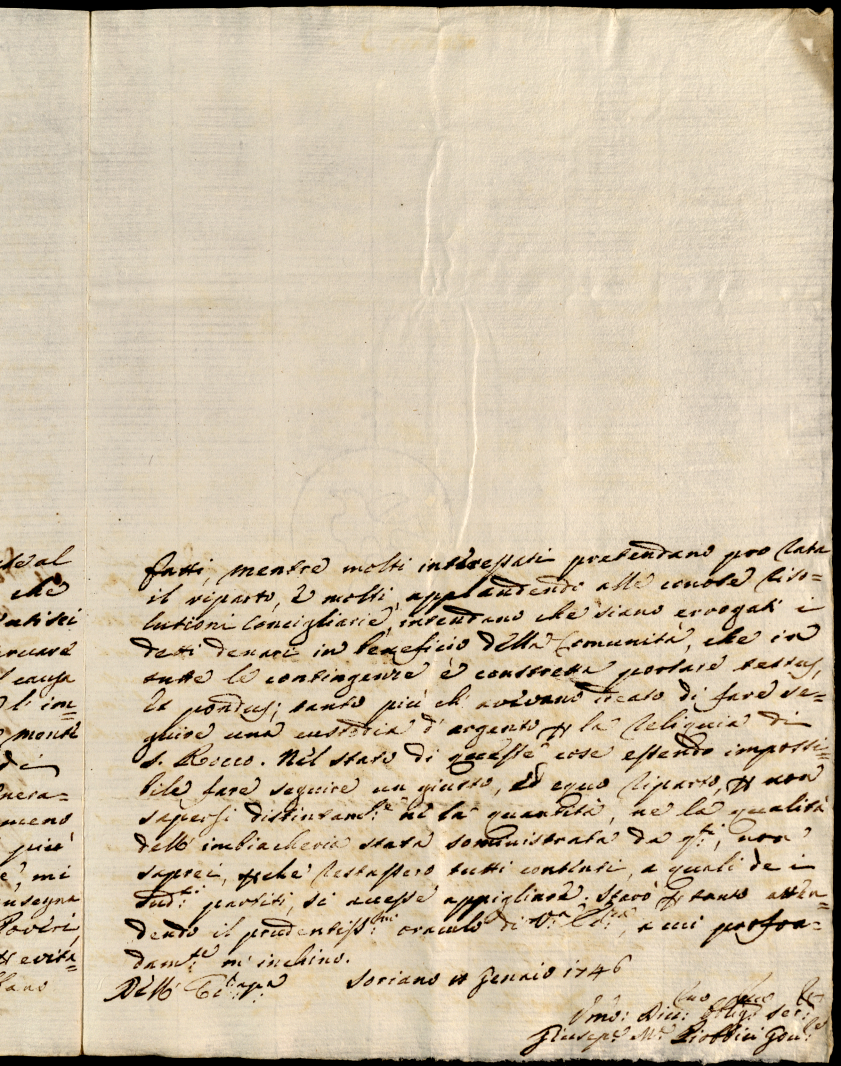 te al
che
ercare
causa
l'im=
monte
di
nera=
meno
più
e, mi
nsegna
Poveri,
evita=
fatti, mentre molti interessati pretendano pro rata
il riparto, e molti, applaudendo alle enonse riso=
lutioni Concigliarie, intendano che siano erogati i
detti denari in beneficio della Comunità, che in
tutte le contingenze è constretta portare
et pondus; tanto più ch' avevano di fare se=
guire una custodia d'argento p la Reliquia di
S. Rocco. Nel stato di queste cose essendo impossi=
bile fare seguire un giusto, ed equo riparto, p non
sapersi distintam.te ne la quantità, ne la qualità
dell' imbiacheria stata somministrata da q.ti, non
saprei, p che restassero tutti contenti, a quali de i
sud.ti partiti, si avesse appigliare. Starò p tanto atten=
dendo il prudentiss.mo oracolo di V.ra, a cui profon=
dam.te m' inchino.
Dell' Soriano 11 Gennaio 1746
Umo: Div: Oblig: Ser:
Giusep.e M.a Gov: